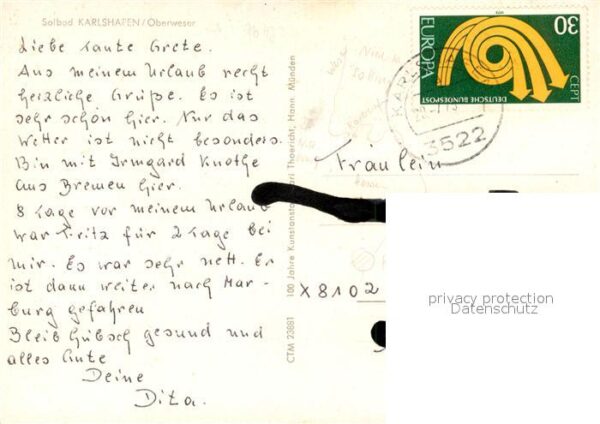 Solbad KARLSHAFEN/Oberweser
Liebe Tante Grete.
Aus meinem Urlaub recht
herzliche Grüße. Es ist
sehr schön hier. Nur das
Wetter ist nicht besonders.
Bin mit Irmgard Knothe
aus Bremen hier.
8 Tage vor meinem Urlaub
war Fritz für 2 Tage bei
mir. Es war sehr nett. Er
ist dann weiter nach Mar-
burg gefahren
Bleib hübsch gesund und
alles Gute
Deine
Dita.
CTM 23881
100 Jahre Kunstanstalt Carl Thoericht, Hann. Münden
Fräulein
X8102
30
EUROPA
CEPT
DEUTSCHE BUNDESPOST
3522
privacy protection
Datenschutz